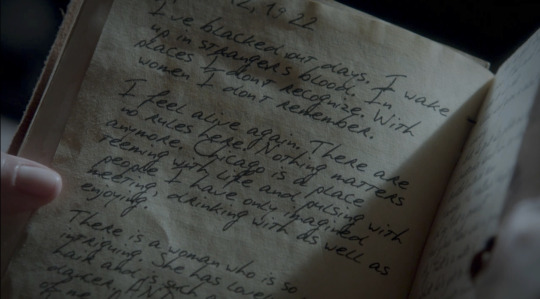 12, 1922
I've blacked out days. I wake
up in stranger's blood. In
places I don't recognize. With
women I don't remember.
I feel alive again. There are
no rules here. Nothing matters
anymore. Chicago is a place
teeming with life and pulsing with
people I have only imagined
meeting, drinking with as well as
enjoying.
There is a woman who is so
intriguing. She has lovel
hair and is such a
dancer. And
of me